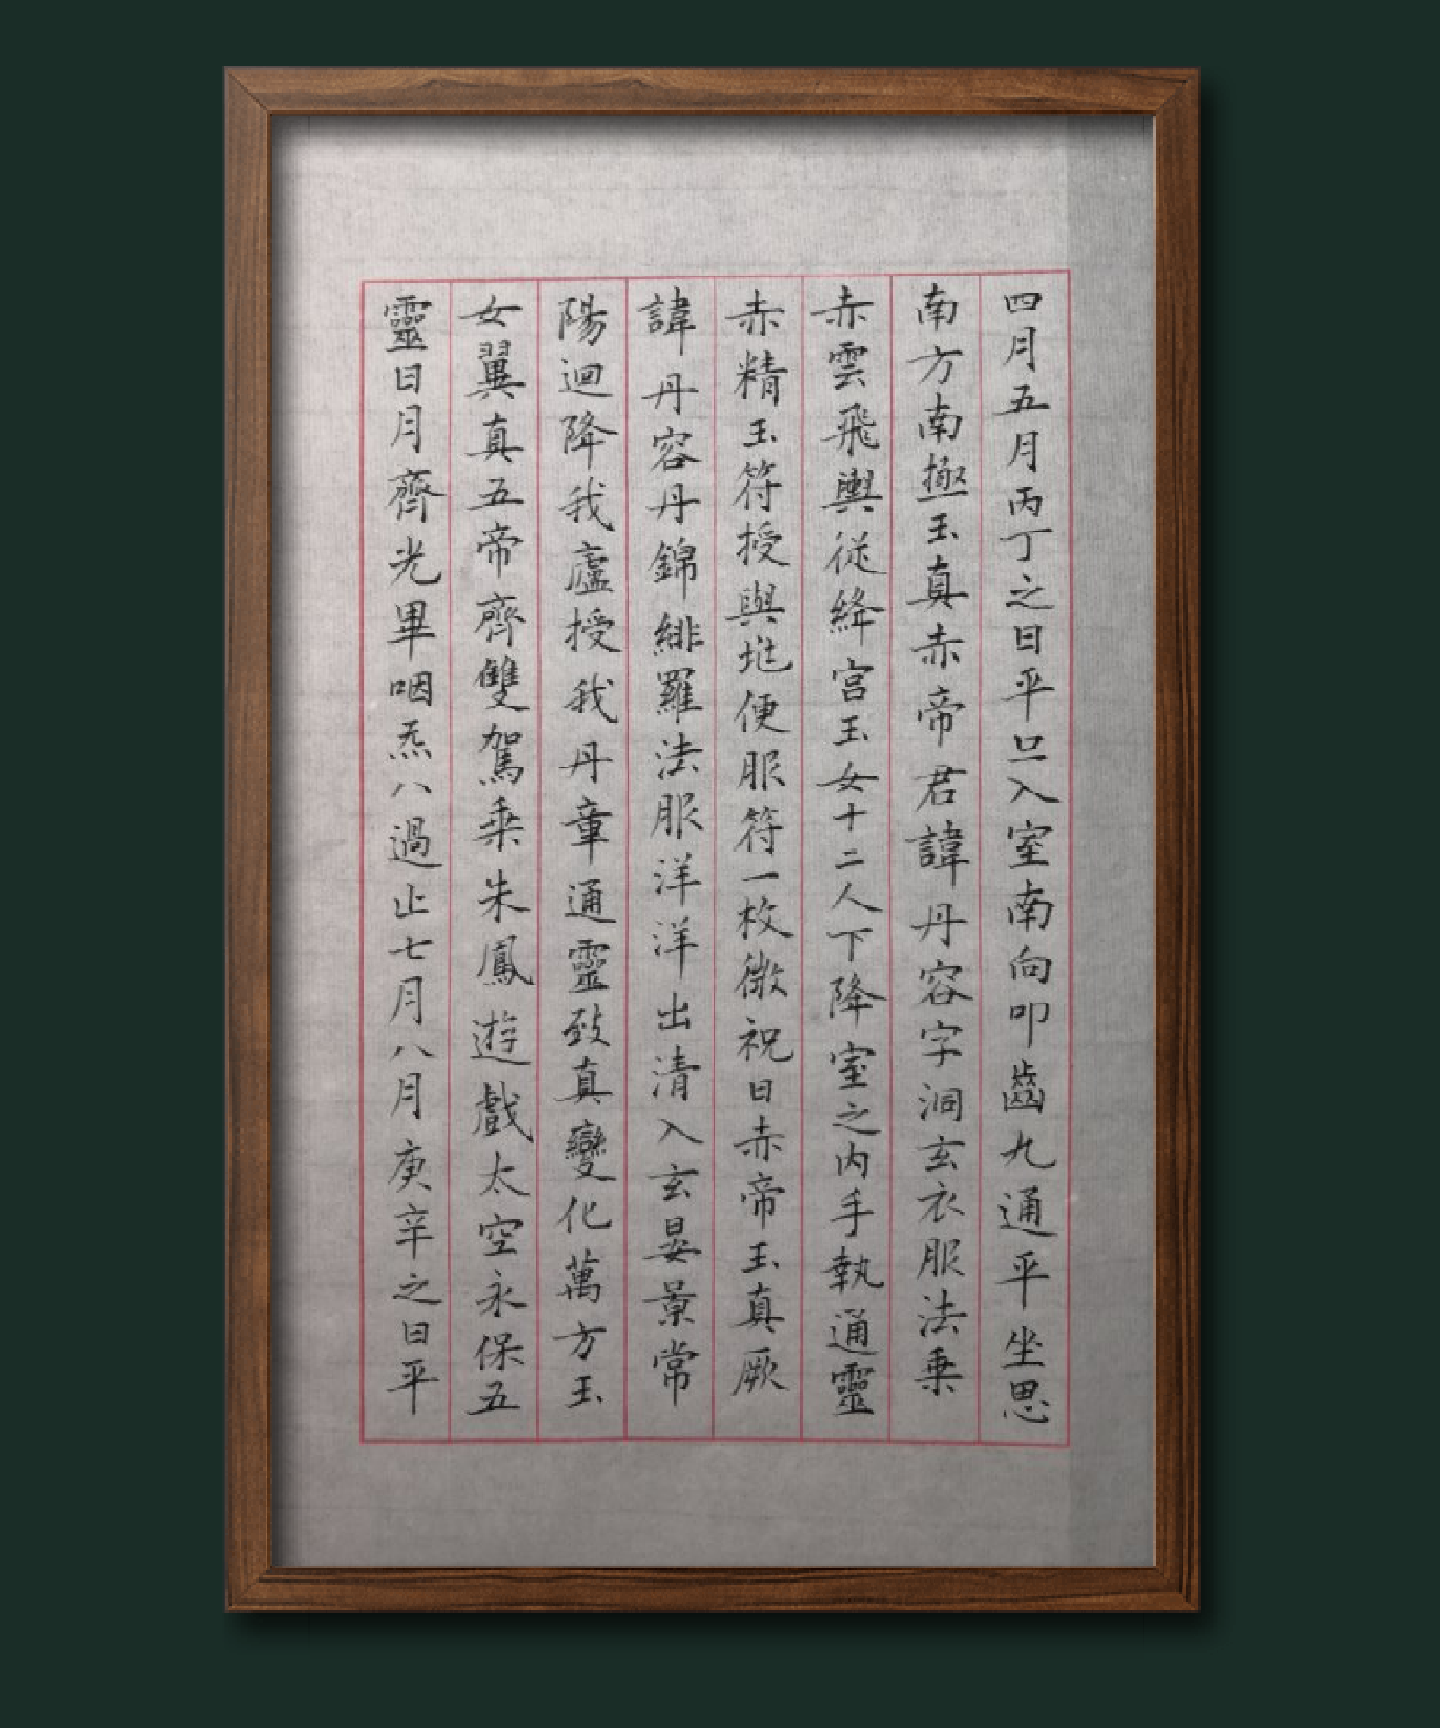 四月五月丙丁之日平旦入室南向叩齒九通平坐思
南方南極玉真赤帝君諱丹容字洞玄衣服法乗
赤雲飛輿從絳宮玉女十二人下降室之内手執通靈
赤精玉符授與地便服符一枚微祝曰赤帝玉真厥
諱丹容丹錦緋羅法服洋洋出清入玄晏景常
陽迴降我廬授我丹章通靈致真變化萬方玉
女翼真五帝齊雙駕乗朱鳳遊戲太空永保五
靈日月齊光畢咽炁八過止七月八月庚辛之日平